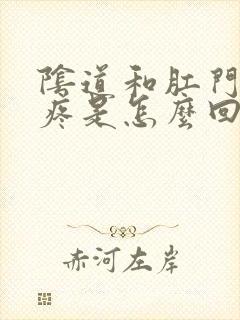 陰道和肛門
疼是怎麼回
赤河左岸